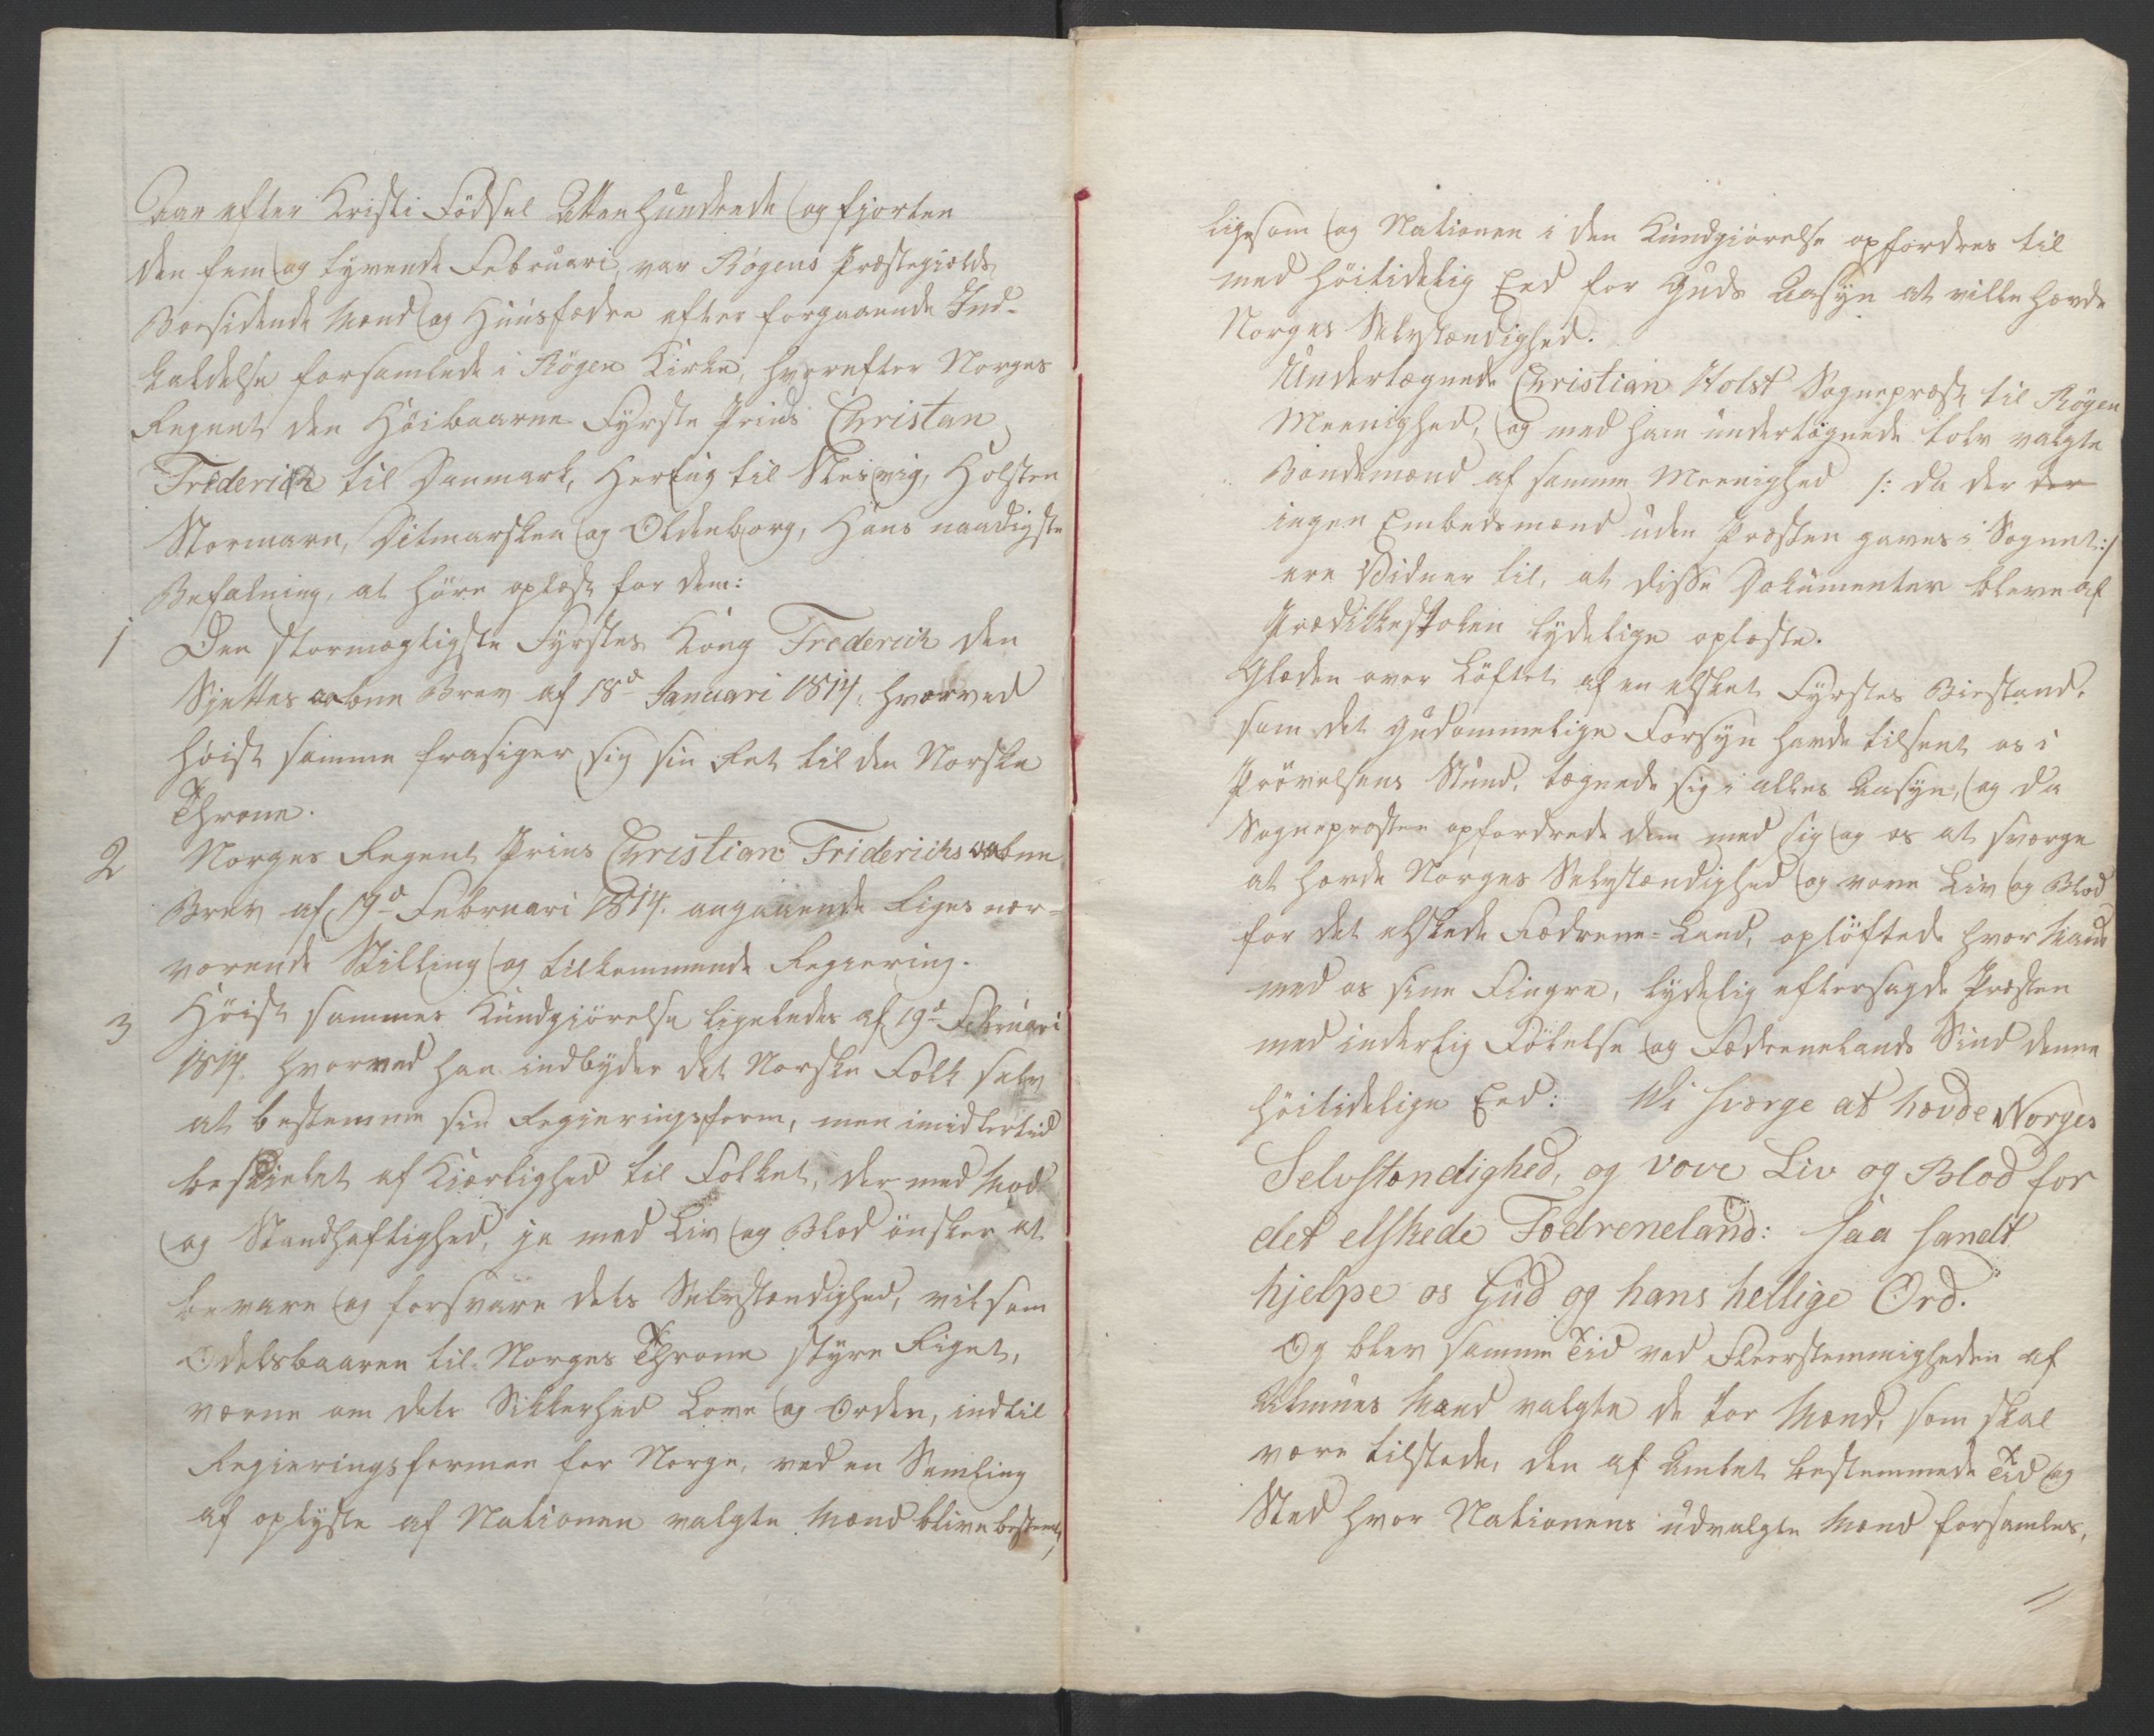 Aar efter Kristi Födsel Attenhundrede og fjorten
den fem og tyvende Februari var Røgens Præstegiælds
Boesidende Mænd og Huusfædre efter forgaaende Ind-
kaldelse forsamlede i Røgen Kirke, hvorefter Norges
Regent den Höibaarne Fyrste Prinds Christan
Friderich til Danmark, Hertug til Slesvig, Holsten
Stormarn, Ditmarsken og Oldenborg, Hans naadigste
Befalning, at höre oplæst for dem:
1 Den stormægtigste Fyrstes Kong Frederich den
Sjettes aabne Brev af 18d Januari 1814. hvorved
höist samme frasiger sig sin Ret til den Norske
Throne.
2 Norges Regent Prins Christian Friderichs aabne
Brev af 19d Februari 1814. angaaende Riges nær-
værende Stilling og tilkommende Regiering.
3 Höist sammes Kundgiörelse ligeledes af 19d Februari
1814. hvorved han indbyder det Norske Folk selv
at bestemme sin Regieringsform, men imidlertid
besielet af Kiærlighed til Folket, der med Mod
og Standhaftighed, ja med Liv og Blod önsker at
bevare og forsvare dets Selvstændighed, vil som
Odelsbaaren til Norges Throne styre Riget,
værne om dets Sikkerhed Love og Orden, indtil
Regieringsformen for Norge, ved en Samling
af oplyste af Nationen valgte Mænd blive bestemt,
ligesom og Nationen i den Kundgiörelse opfordres til
med höitidelig Eed for Guds Aasyn at ville hævde
Norges Selvstændighed.
Undertægnede Christian Holst Sognepræst til Røgen
Meenighed, og med ham undertægnede tolv valgte
Bondemænd af samme Meenighed /: da der der
ingen Embedsmænd uden Præsten gaves i Sognet :/
ere Vidner til, at disse Dokumenter bleve af
Prædikkestolen lydelige oplæste.
Glæden over Löftet af en elsket Fyrstes Biestand,
som det Guddommelige Forsyn havde tilsent os i
Prövelsens Stund, tægnede sig i alles Aasyn, og da
Sognepræsten opfordrede dem med sig og os at sværge
at hævde Norges Selvstændighed og vove Liv og Blod
for det elskede Fædrene-Land, oplöftede hver Mand
med os sine Fingre, lydelig eftersagde Præsten
med inderlig Fölelse og Fædrenelands Sind denne
höitidelige Eed: Vi sværge at hævde Norges
Selvstændighed, og vove Liv og Blod for
det elskede Fædreneland: saa sandt
hjelpe os Gud og hans hellige Ord.
Og blev samme Tid ved Fleerstemmigheden af
Almues Mænd valgte de toe Mænd, som skal
være tilstede, den af Amtet bestemmede Tid og
Sted hvor Nationens udvalgte Mænd forsamles,